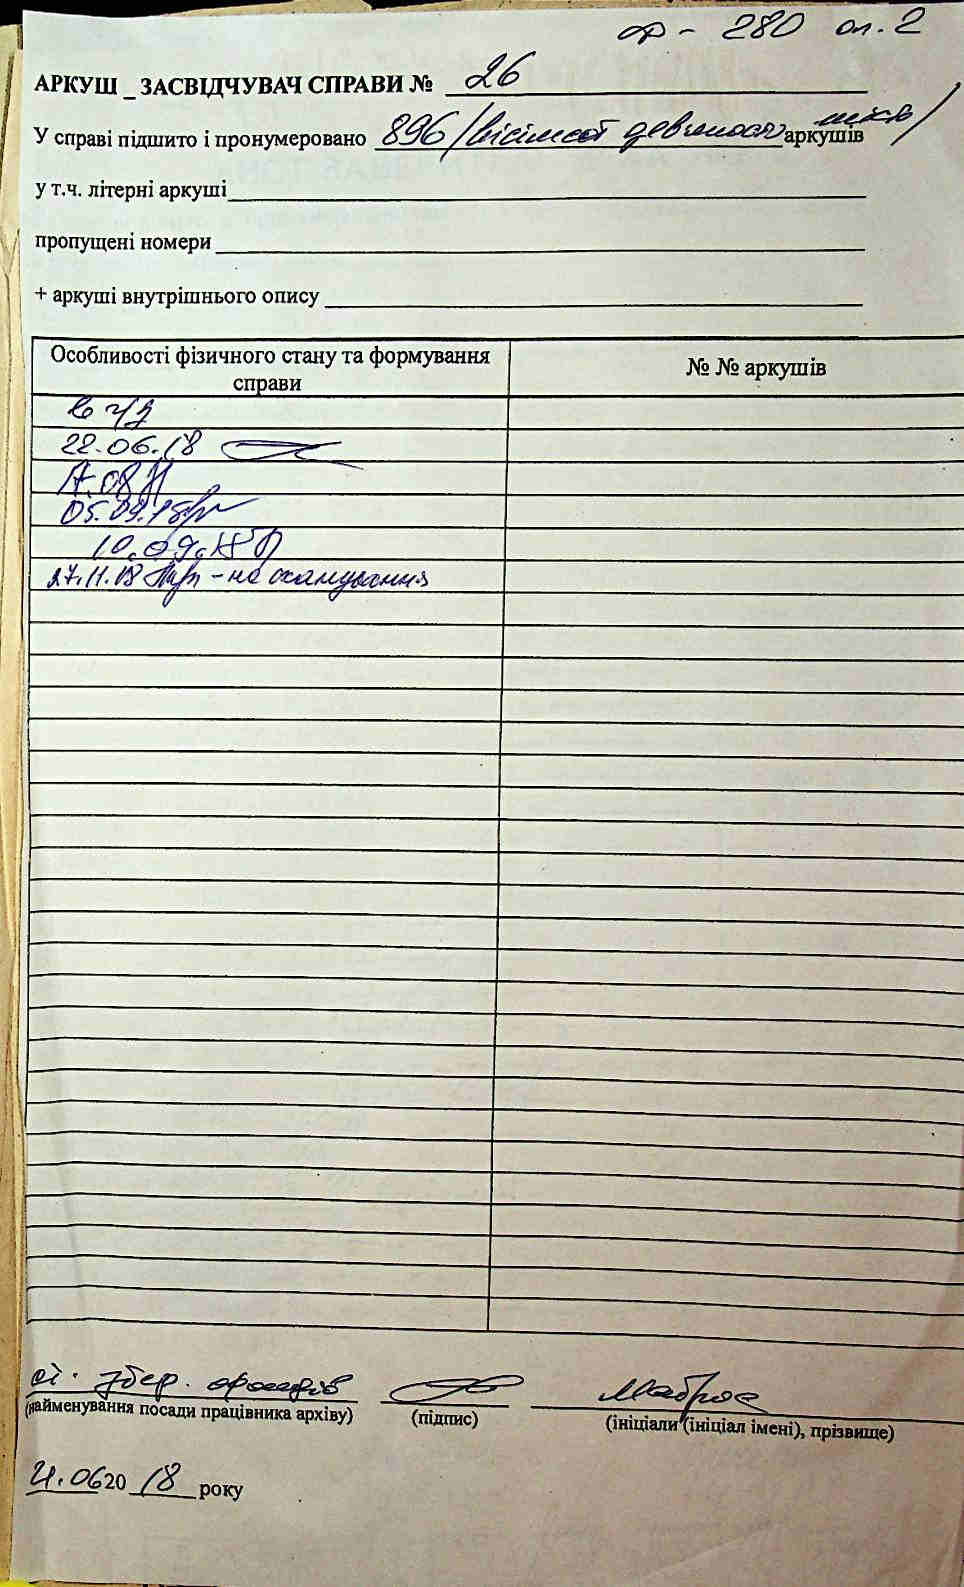 ф - 280 оп. 2
АРКУШ _ ЗАСВІДЧУВАЧ СПРАВИ № 26
У справі підшито і пронумеровано 896 /вісімсот дев'яносто шість/ аркушів
у т.ч. літерні аркуші
пропущені номери
+ аркуші внутрішнього опису
Особливості фізичного стану та формування справи
№ № аркушів
22.06.18
05.09.18
10.09.18
27.11.18 - на сканування
ст. збер. фондів
(найменування посади працівника архіву) (підпис) (ініціали (ініціал імені), прізвище)
.06 20 18 року